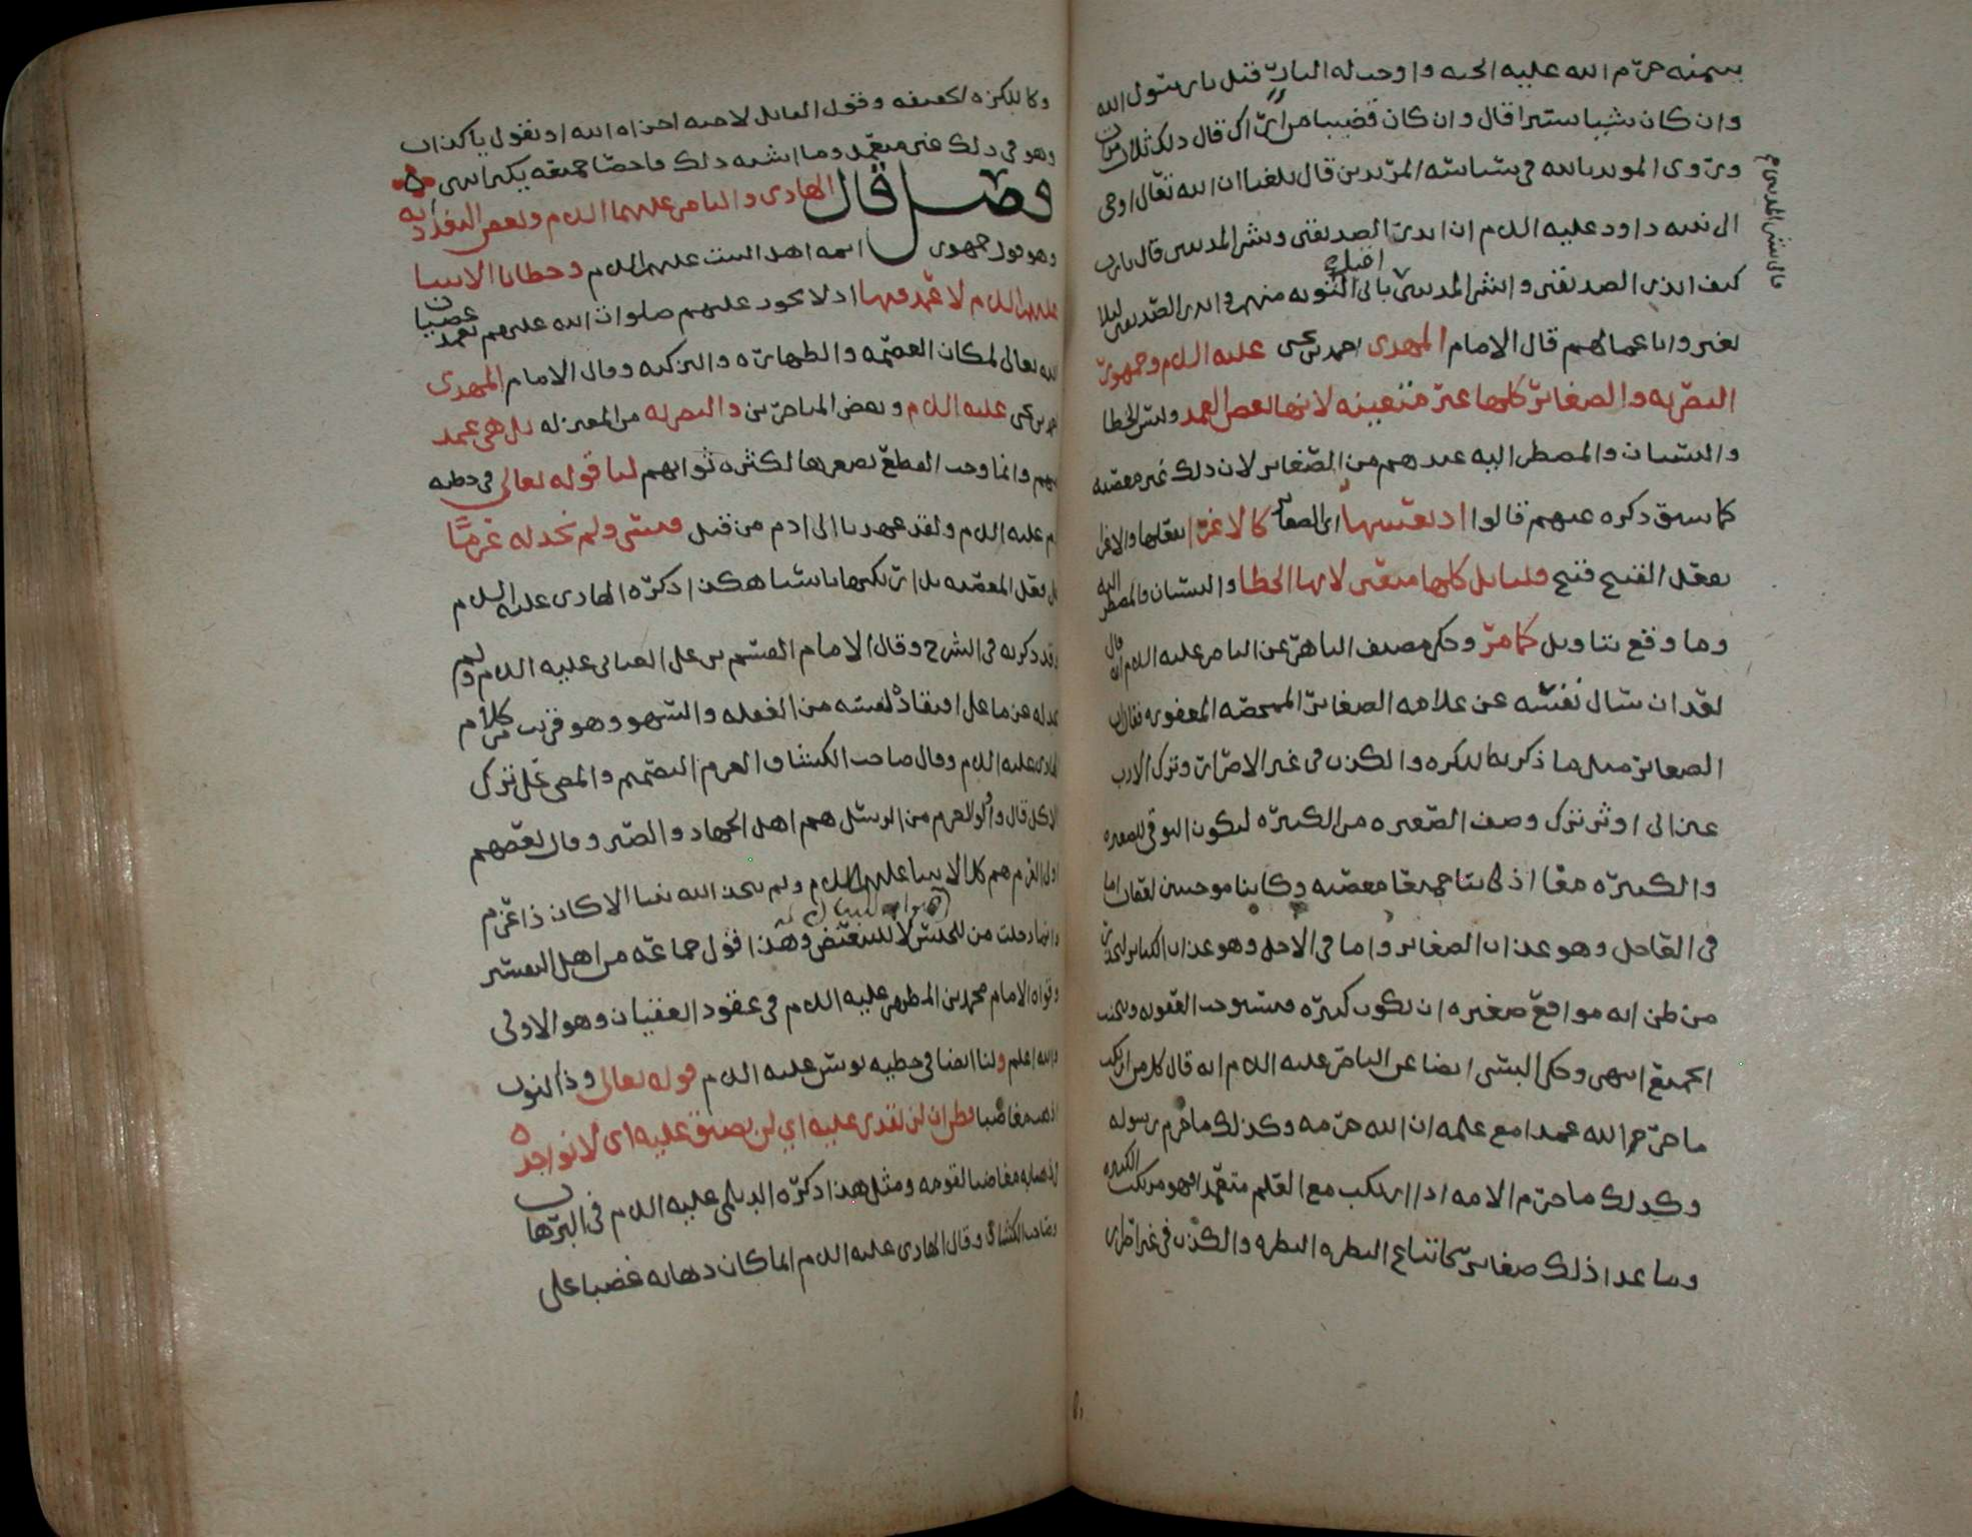 بيمينه حرم الله عليه الجنة واوجب له النار قيل يا رسول الله
وان كان شيا يسيرا قال وان كان قضيبا من اراك قال ذلك ثلاث مرات
وروى المويد بالله في سياسة المريدين قال بلغنا ان الله تعالى اوحى
الى نبيه داود عليه السلم ان انذر الصديقين وبشر المذنبين قال يا رب
كيف انذر الصديقين وابشر المذنبين قال بشر المذنبين
باني اقبل التوبه منهم وانذر الصديقين ليلا
يغتروا باعمالهم قال الامام المهدي احمد بن يحيى عليه السلم وجمهور
البصريه والصغائر كلها غير متعينه لانها بعض العمد وليس الخطا
والنسيان والمضطر اليه عندهم من الصغاير لان ذلك غير معصيه
كما سبق ذكره عنهم قالوا اذ تعيينها اي الصغاير كالاغرا بفعلها والاغرا
بفعل القبيح قبيح قلنا بل كلها متعين لانها الخطا والنسيان والمضطر اليه
وما وقع بتاويل كما مر وحكى مصنف الباهر عن الناصر عليه السلم انه قال
لقد ان سال نفسه عن علامه الصغائر الممحصه المغفوره فقال ان
الصغائر مثل ما ذكر كالبكره والكذب في غير الاضرار وترك الادب
عن الى اوثر ترك وصف الصغيره من الكبيره ليكون التوقي للصغيره
والكبيره معا اذ كانتا جميعا معصيه وكانتا موجبتين لعقاب اما
في العاجل وهو عذاب الصغاير واما في الاجل وهو عذاب الكباير ليحذر
من ظن انه مواقع صغيره ان تكون كبيره فيستوجب العقوبه ويجتنب
الجميع انتهى وحكى البستي ايضا عن الناصر عليه السلم انه قال كل من ارتكب
ما حرم الله عمدا مع علمه ان الله حرمه وكذلك ما حرم رسوله
وكذلك ما حرم الامه اذا ارتكب مع العلم متعمدا فهو مرتكب الكبيره
وما عدا ذلك صغاير كاتباع النظره النظره والكذب في غير اضرار
وكالبكره الخفيفه وقول القايل لاخيه اخزاه الله او يقول يا كذاب
وهو في ذلك غير متعمد وما اشبه ذلك فاحصا جميعه يكثر انتهى
فصل قال الهادي والناصر عليهما السلم وبعض البغداديه
وهو قول جمهور ائمه اهل البيت عليهم السلم وخطايا الانبيا
عليهم السلم لا عمد فيها اذ لا يجوز عليهم صلوات الله عليهم تعمد عصيان
الله تعالى لمكان العصمه والطهاره والتزكيه وقال الامام المهدي
احمد بن يحيى عليه السلم وبعض المتاخرين والبصريه من المعتزله بل هي عمد
منهم وانما وجب القطع بصغرها لكثره ثوابهم لنا قوله تعالى في خطيه
ادم عليه السلم ولقد عهدنا الى ادم من قبل فنسي ولم نجد له عزما
بل فعل المعصيه بل ارتكبها ناسيا هكذا ذكره الهادي عليه السلم
وقد ذكرته في الشرح وقال الامام القسم بن علي العياني عليه السلم ولم
نجد له عزما على افتقاد نفسه من الغفله والسهو وهو قريب من كلام
الهادي عليه السلم وقال صاحب الكشاف العزم التصميم والمضي على ترك
الاكل قال واولو العزم من الرسل هم اهل الجهاد والصبر وقال بعضهم
اولو العزم هم كل الانبيا عليهم السلم ولم يتخذ الله نبيا الا كان ذا عزم
وانما دخلت من للجنس لا للتبعيض وهذا قول جماعه من اهل التفسير
وقواه الامام محمد بن المطهر عليه السلم في عقود العقيان وهو الاولى
والله اعلم ولنا ايضا في خطيه يونس عليه السلم قوله تعالى وذا النون
اذ ذهب مغاضبا فظن ان لن نقدر عليه اي لن نضيق عليه اي لا نواخذه
لذهابه مغاضبا لقومه ومثل هذا ذكره الديلمي عليه السلم في البرهان
وصاحب الكشاف وقال الهادي عليه السلم انما كان ذهابه غضبا على